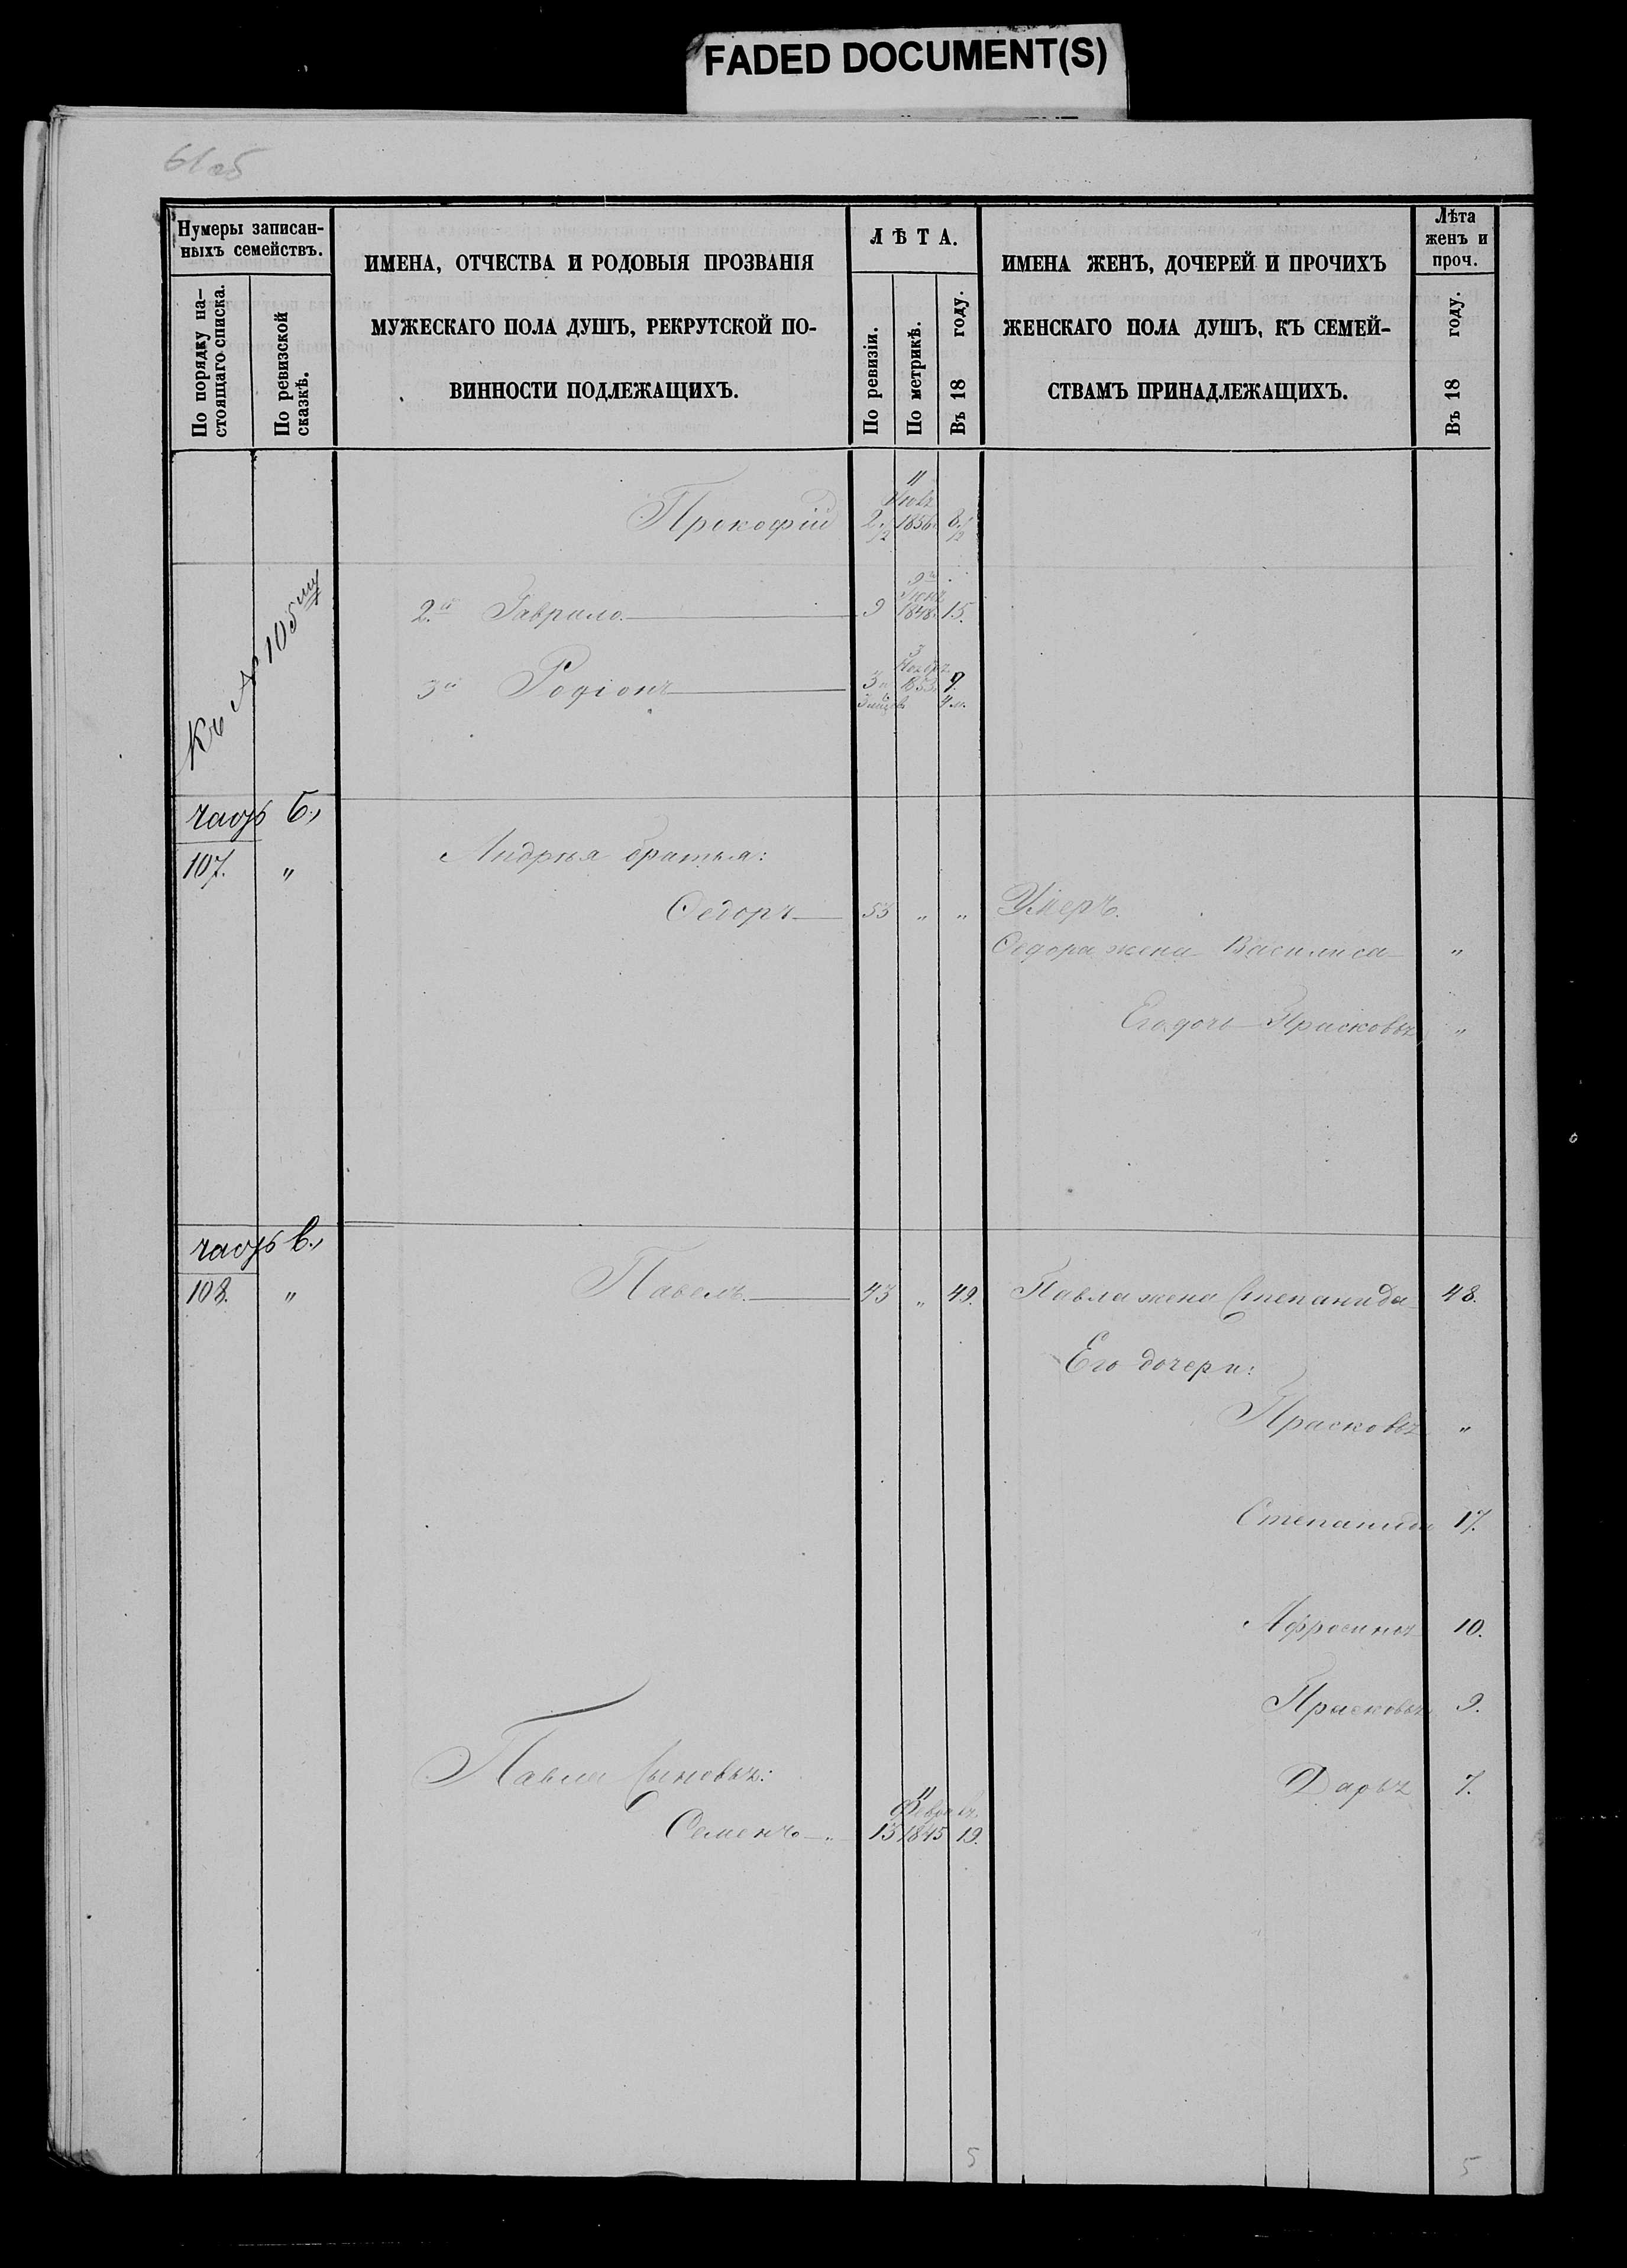 FADED DOCUMENT(S)
61 об
Нумеры записан-
ныхъ семействъ.
По порядку на-
стоящаго списка.
По ревизской
сказкѣ.
ИМЕНА, ОТЧЕСТВА И РОДОВЫЯ ПРОЗВАНІЯ
МУЖЕСКАГО ПОЛА ДУШЪ, РЕКРУТСКОЙ ПО-
ВИННОСТИ ПОДЛЕЖАЩИХЪ.
ЛѢТА.
По ревизіи.
По метрикѣ.
Въ 18 году.
ИМЕНА ЖЕНЪ, ДОЧЕРЕЙ И ПРОЧИХЪ
ЖЕНСКАГО ПОЛА ДУШЪ, КЪ СЕМЕЙ-
СТВАМЪ ПРИНАДЛЕЖАЩИХЪ.
Лѣта
женъ и
проч.
Въ 18 году.
11
Прокофій 1856
9
2й Гаврило 9 1848. 15.
3
Ноябр.
3й Родіонъ 3 1853. 9.
4 м.
Къ № 105му
часть Б.,
107. „ Андрея братья:
Федоръ 53 „ „ Умеръ.
Федора жена Василиса „
Его дочь Прасковья „
часть В.,
108. „ Павелъ 43 „ 49. Павла жена Степанида 48.
Его дочери:
Прасковья „
Степанида 17.
Афросинья 10.
Прасковья 9.
Павла сыновья:
Дарья 7.
11
Февраля
Семенъ 13 1845 19.
5 5